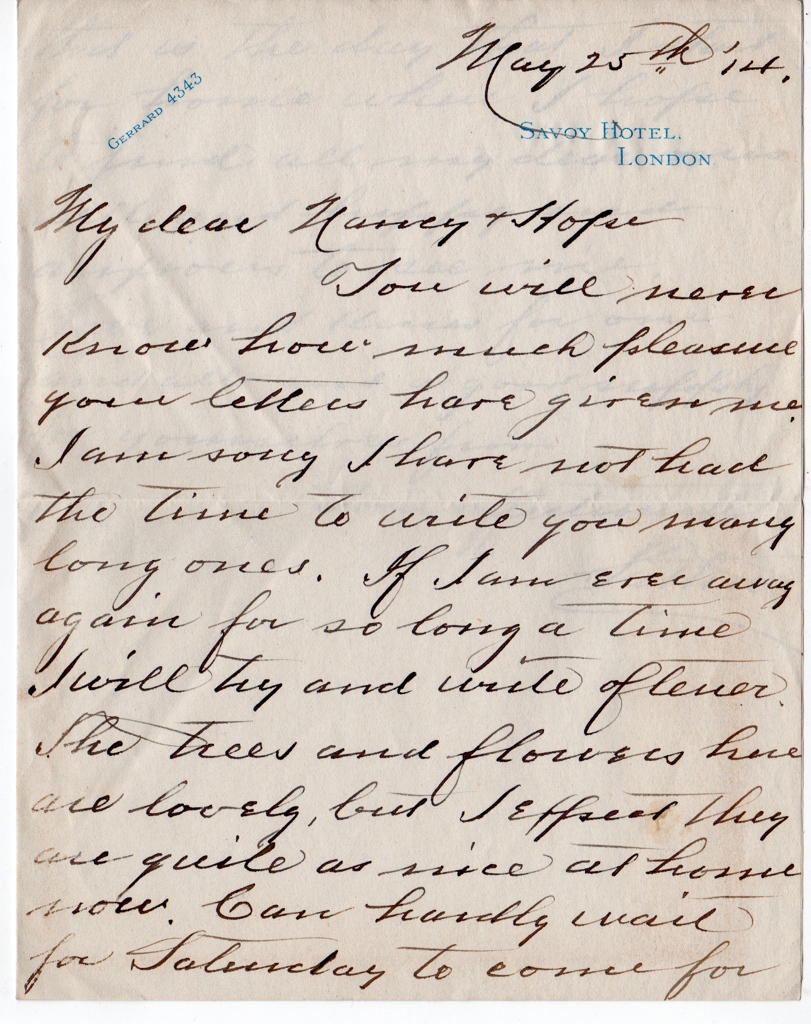 May 25th '14.
GERRARD 4343
SAVOY HOTEL.
LONDON
My dear Nancy + Hope
You will never
know how much pleasure
your letters have given me.
I am sorry I have not had
the time to write you many
long ones. If I am ever away
again for so long a time
I will try and write oftener.
The trees and flowers here
are lovely, but I expect they
are quite as nice at home
now. Can hardly wait
for Saturday to come for